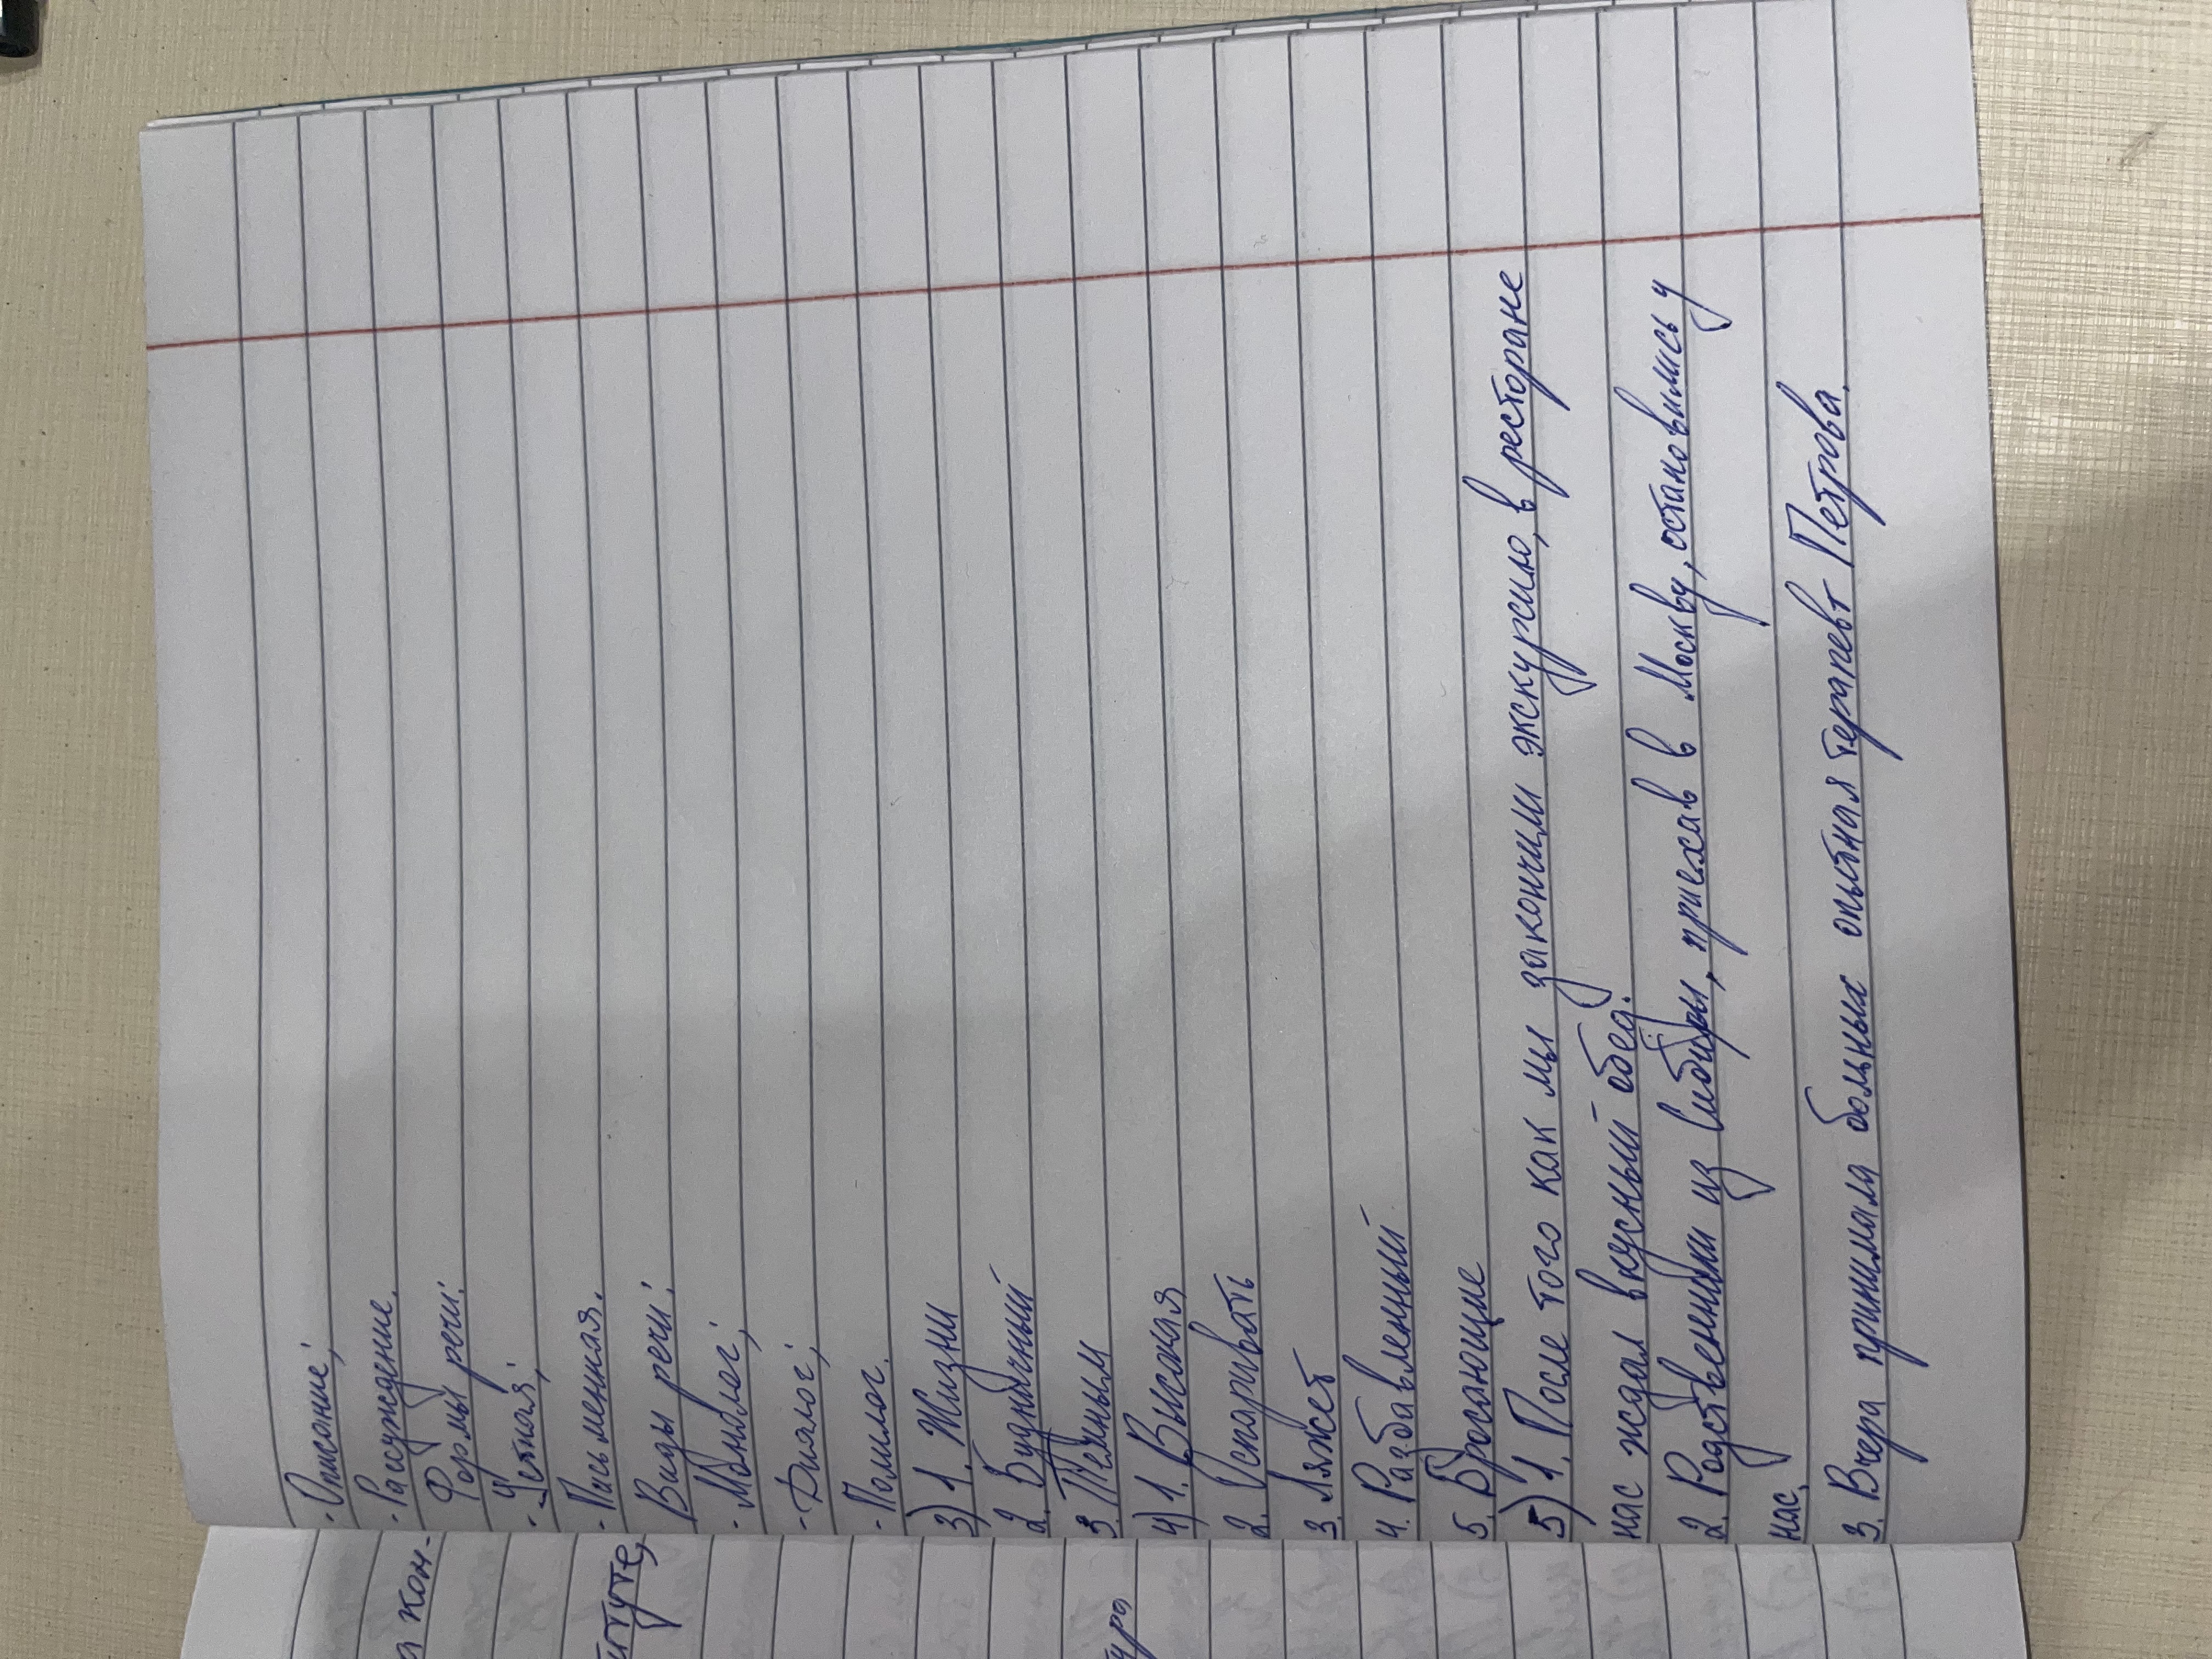 - Описание;
- Рассуждение.
Формы речи:
- Устная;
- Письменная.
Виды речи:
- Монолог;
- Диалог;
- Полилог.
3) 1. Жизни
2. Будничный
3. Тёмным
4) 1. Высокая
2. Оспаривать
3. Ляжет
4. Разбавленный
5. Бросающие
5) 1. После того как мы закончили экскурсию, в ресторане
нас ждал вкусный обед.
2. Родственники из Сибири, приехав в Москву, остановились у
нас.
3. Вчера принимала больных опытная терапевт Петрова.
кон-